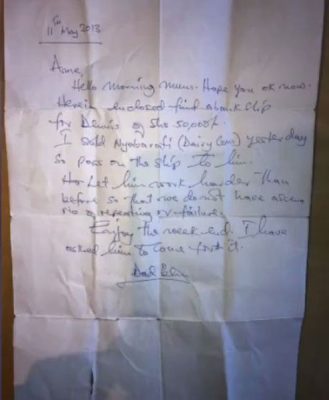 11th May 2013
Anne,
Hello morning mum. Hope you ok now.
Herein enclosed find a bank slip
for Dennis of shs 50,000/=
I sold Nyabarofi (Dairy Cow) yesterday
so pass on the slip to him.
let him work harder than
before so that we do not have a
of repeating or failure.
Enjoy the week end. I have
asked him to come for it.
Dad